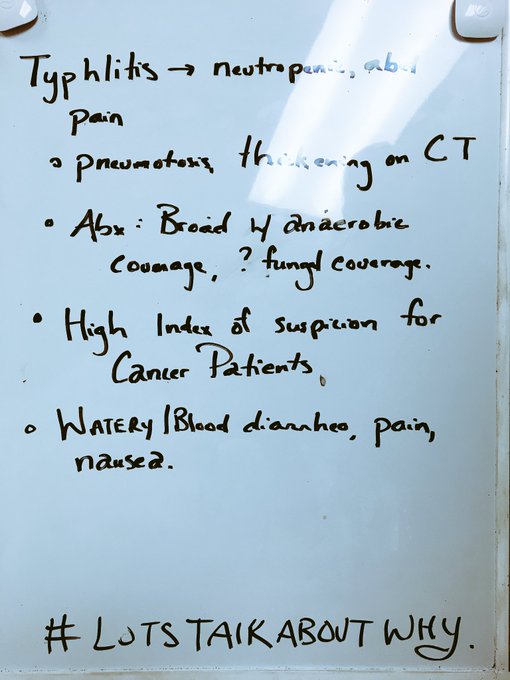 Typhlitis → neutropenic, abd
pain
• pneumotosis, thickening on CT
• Abx: Broad w/ anaerobic
coverage, ? fungal coverage.
• High Index of suspicion for
Cancer Patients,
• WATERY/Blood diarrhea, pain,
nausea.
# LUTSTALKABOUTWHY.